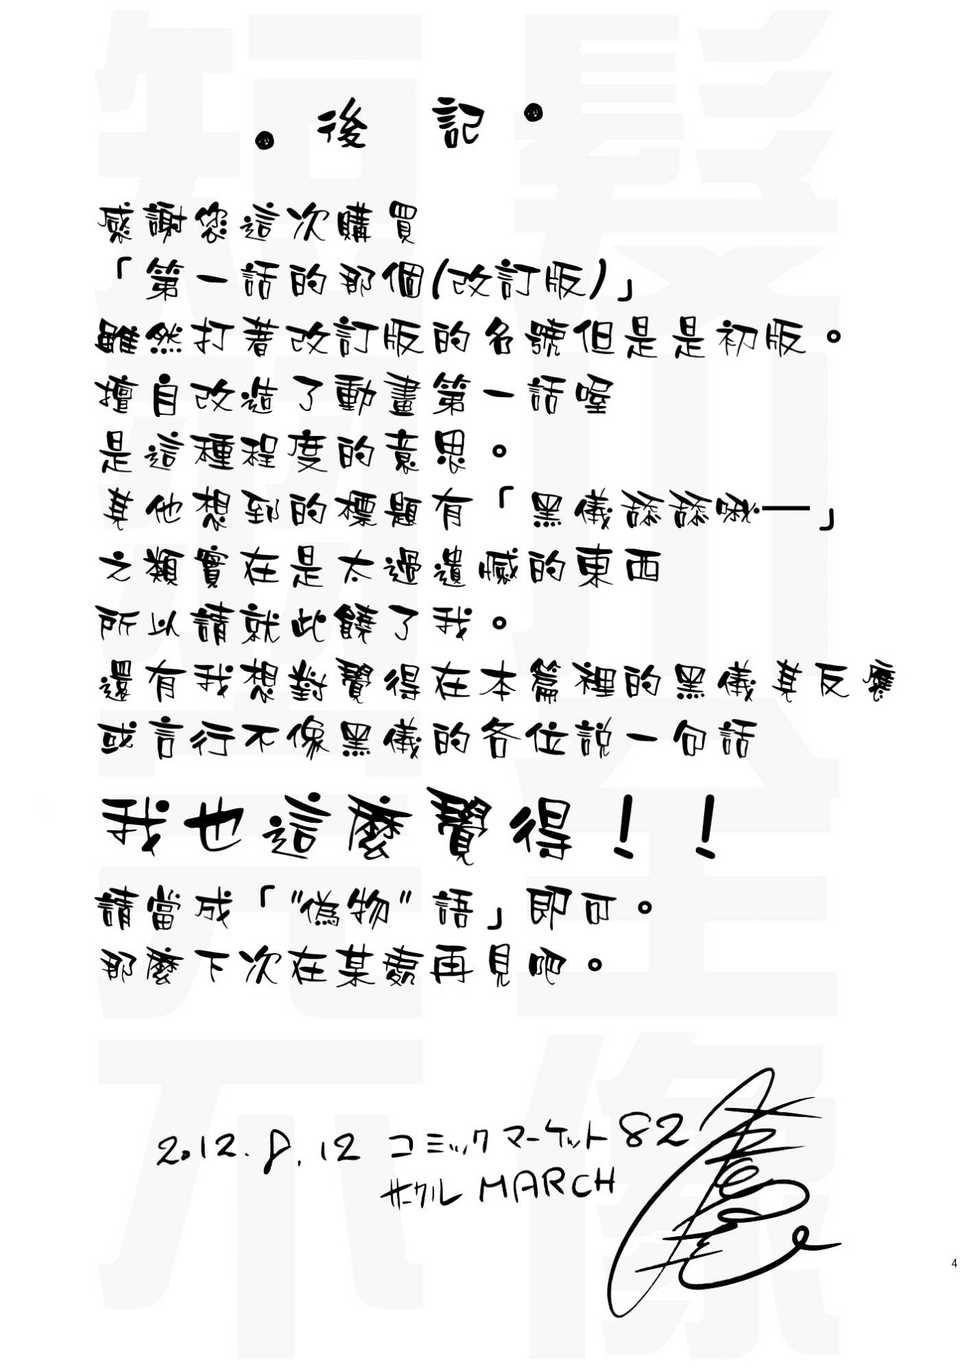 後記
感謝您這次購買
「第一話的那個(改訂版)」
雖然打著改訂版的名號但是是初版。
擅自改造了動畫第一話喔
是這種程度的意思。
其他想到的標題有「黑儀舔舔啾一」
之類實在是太過遺憾的東西
所以請就此饒了我。
還有我想對覺得在本篇裡的黑儀其反應
或言行不像黑儀的各位說一句話
我也這麼覺得！！
請當成「"偽物"語」即可。
那麼下次在某處再見吧。
2012.8.12 コミックマーケット82
サークル MARCH
4